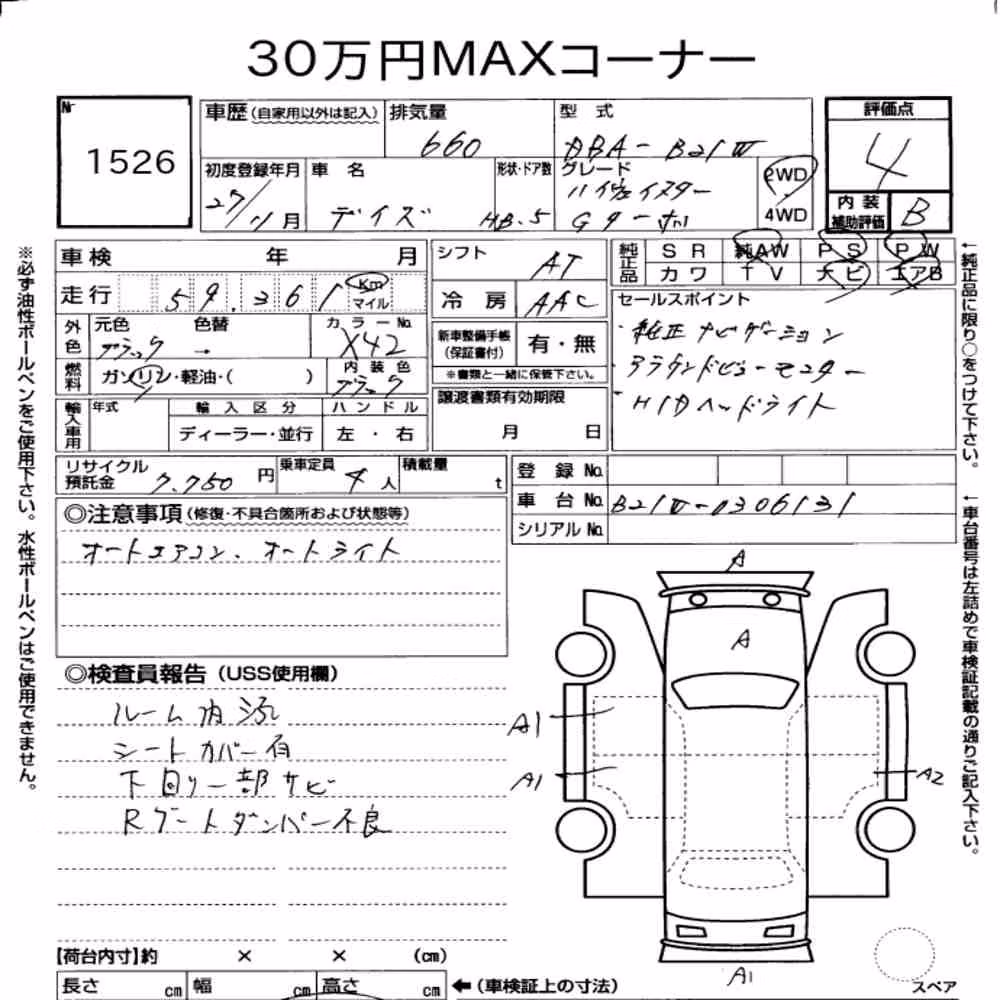 30万円MAXコーナー
№
1526
車歴(自家用以外は記入)
排気量
660
型式
DBA-B21W
評価点
4
初度登録年月
27/11月
車名
デイズ
形状・ドア数
HB.5
グレード
ハイウェイスター
Gターボ
2WD
4WD
内装
補助評価
B
車検 年 月
シフト
AT
純正品
SR 純AW PS PW
カワ TV ナビ エアB
走行
59.361
Km
マイル
冷房
AAC
セールスポイント
・純正ナビゲーション
・アラウンドビューモニター
・HIDヘッドライト
外色
元色
ブラック
色替
→
カラーNo.
X42
新車整備手帳
(保証書付)
有・無
※書類と一緒に保管下さい。
燃料
ガソリン・軽油・( )
内装色
ブラック
輸入車用
年式
輸入区分
ディーラー・並行
ハンドル
左・右
譲渡書類有効期限
月 日
リサイクル
預託金
7.750円
乗車定員
4人
積載量
t
登録No.
車台No.
B21W-0306131
シリアルNo.
◎注意事項(修復・不具合箇所および状態等)
オートエアコン、オートライト
◎検査員報告(USS使用欄)
ルーム内汚れ
シートカバー有
下回り一部サビ
Rゲートダンパー不良
A
A
A1
A1
A2
A1
スペア
【荷台内寸】約 × × (cm)
長さ cm 幅 cm 高さ cm
←(車検証上の寸法)
※必ず油性ボールペンをご使用下さい。水性ボールペンはご使用できません。
←純正品に限り○をつけて下さい。
←車台番号は左詰めで車検証記載の通りご記入下さい。